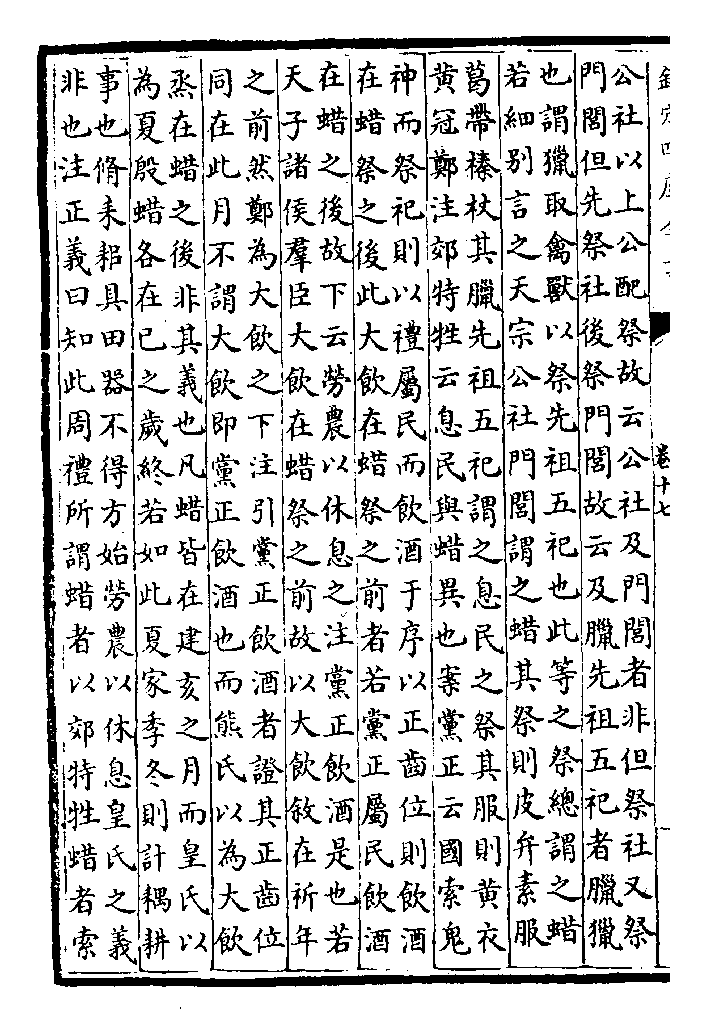 欽定四庫全書
卷十七
公社以上公配祭故云公社及門閭者非但祭社又祭
門閭但先祭社後祭門閭故云及臘先祖五祀者臘獵
也謂獵取禽獸以祭先祖五祀也此等之祭總謂之蜡
若細別言之天宗公社門閭謂之蜡其祭則皮弁素服
葛帶榛杖其臘先祖五祀謂之息民之祭其服則黄衣
黄冠鄭注郊特牲云息民與蜡異也案黨正云國索鬼
神而祭祀則以禮屬民而飲酒于序以正齒位則飲酒
在蜡祭之後此大飲在蜡祭之前者若黨正屬民飲酒
在蜡之後故下云勞農以休息之注黨正飲酒是也若
天子諸侯羣臣大飲在蜡祭之前故以大飲敘在祈年
之前然鄭為大飲之下注引黨正飲酒者證其正齒位
同在此月不謂大飲即黨正飲酒也而熊氏以為大飲
烝在蜡之後非其義也凡蜡皆在建亥之月而皇氏以
為夏殷蜡各在已之歲終若如此夏家季冬則計耦耕
事也脩耒耜具田器不得方始勞農以休息皇氏之義
非也注正義曰知此周禮所謂蜡者以郊特牲蜡者索